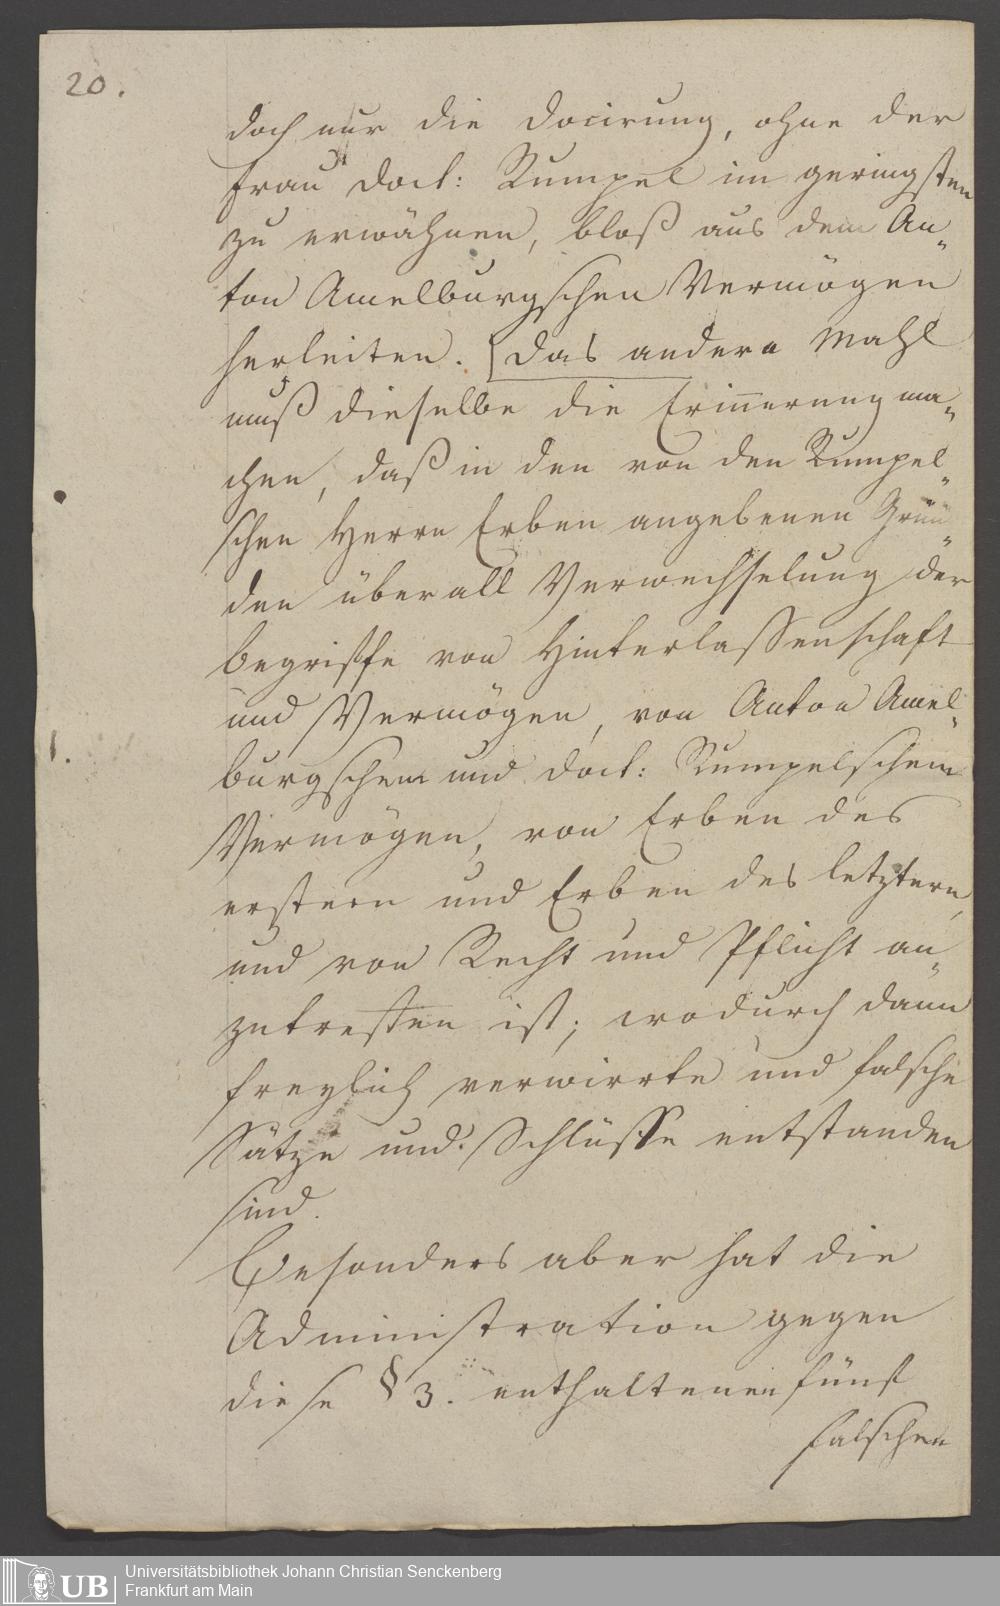 20.
doch nur die docirung, ohne der
Frau Doct: Rumpel im geringsten
zu erwähnen, bloß aus dem An„
ton Amelburgschen Vermögen
herleiten. [das andere Mahl
muß dieselbe die Erinnerung ma„
chen, daß in den von den Rumpel„
schen Herrn Erben angebenen Grün„
den überall Verwechselung der
begriffe von Hinterlassenschaft
und Vermögen, von Anton Amel„
burgschem und Doct: Rumpelschem
Vermögen, von Erben des
erstern und Erben des letztern,
und von Recht und Pflicht an„
zutreffen ist; wodurch dann
freylich verwirrte und falsche
Sätze und Schlüsse entstanden
sind.
Besonders aber hat die
Administration gegen
diese § 3. enthaltenen fünf
falschen
1.
UB
Universitätsbibliothek Johann Christian Senckenberg
Frankfurt am Main